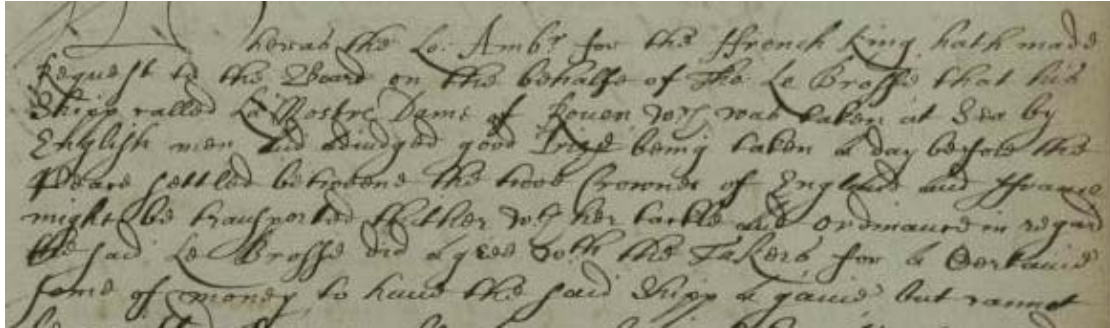 Whereas the Lo: Ambr for the ffrench King hath made
Request to the Board on the behalfe of The Le Brosse that his
Shipp called La Nostre Dame of Rouen wch was taken at Sea by
English men and adiudged good Prize being taken a day before the
Peace settled betweene the twoe Crownes of England and ffrance
might be transported thither wth her tackle and ordinance in regard
the said Le Brosse did agree with the Takers for a Certaine
some of money to haue the said Shipp againe but cannot